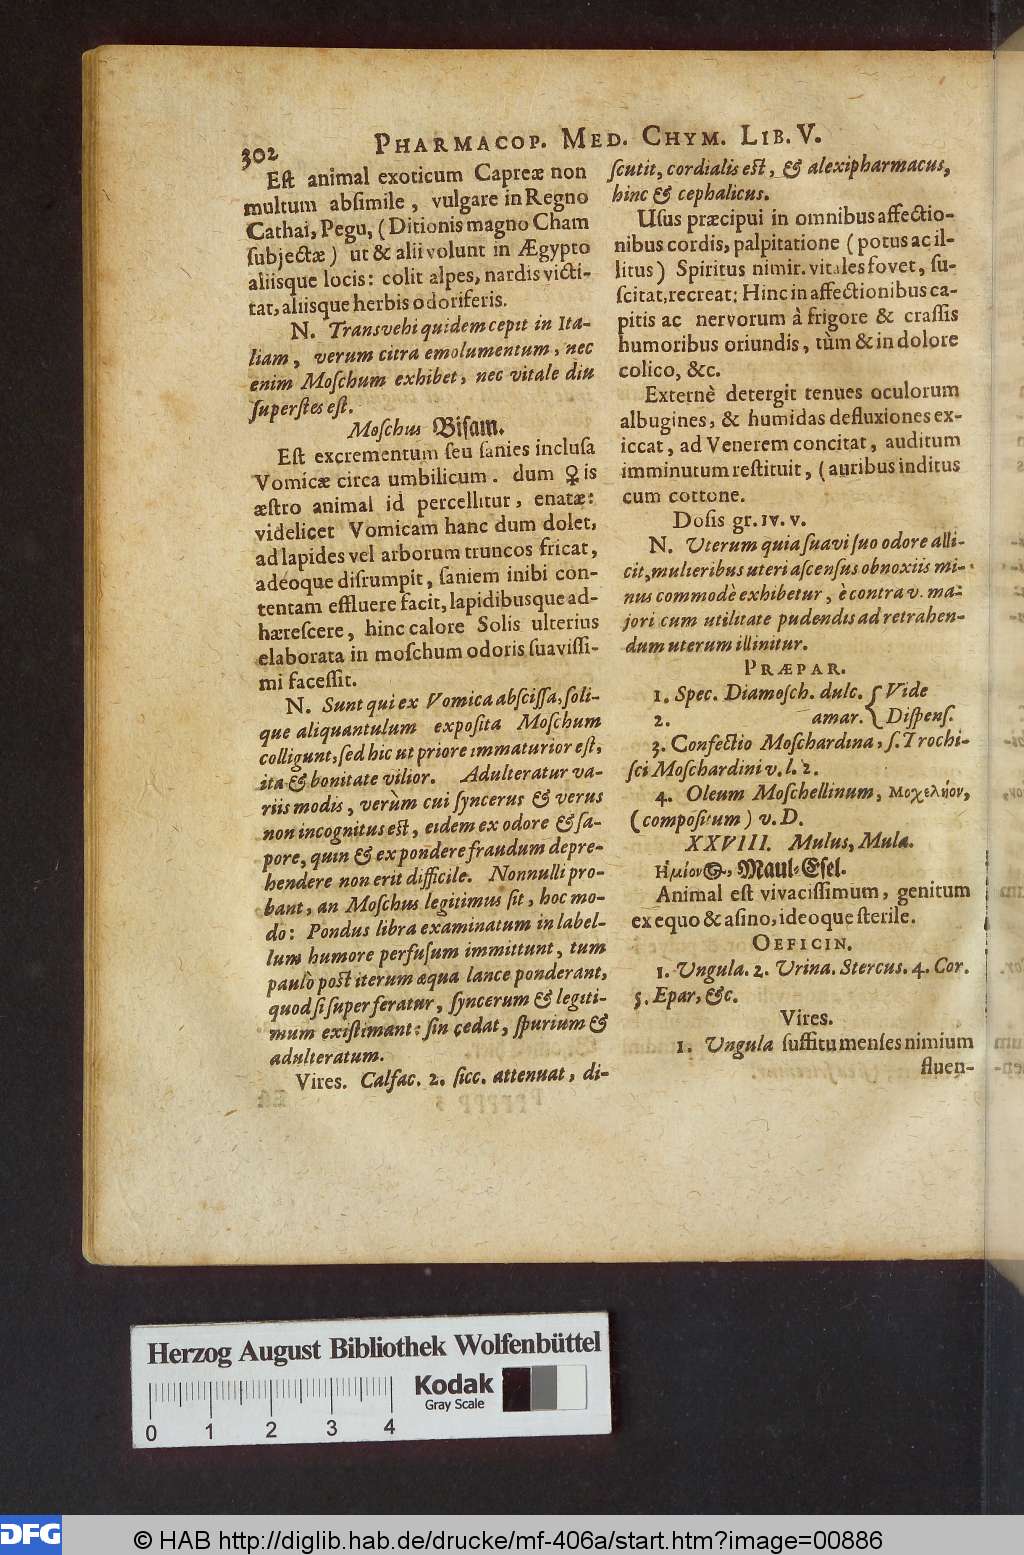 302
PHARMACOP. MED. CHYM. LIB. V.
Eſt animal exoticum Capreæ non
multum abſimile, vulgare in Regno
Cathai, Pegu, (Ditionis magno Cham
ſubjectæ) ut & alii volunt in Ægypto
aliisque locis: colit alpes, nardis victi-
tat, aliisque herbis odoriferis.
N. Transvehi quidem cepit in Ita-
liam, verum citra emolumentum, nec
enim Moſchum exhibet, nec vitale diu
ſuperſtes eſt.
Moſchus Biſam.
Eſt excrementum ſeu ſanies incluſa
Vomicæ circa umbilicum. dum ♀is
æſtro animal id percellitur, enatæ:
videlicet Vomicam hanc dum dolet,
ad lapides vel arborum truncos fricat,
adeoque diſrumpit, ſaniem inibi con-
tentam effluere facit, lapidibusque ad-
hæreſcere, hinc calore Solis ulterius
elaborata in moſchum odoris ſuaviſſi-
mi faceſſit.
N. Sunt qui ex Vomica abſciſſa, ſoli-
que aliquantulum expoſita Moſchum
colligunt, ſed hic ut priore immaturior eſt,
ita & bonitate vilior. Adulteratur va-
riis modis, verùm cui ſyncerus & verus
non incognitus est, eidem ex odore & ſa-
pore, quin & ex pondere fraudum depre-
hendere non erit difficile. Nonnulli pro-
bant, an Moſchus legitimus ſit, hoc mo-
do: Pondus libra examinatum in label-
lum humore perfuſum immittunt, tum
paulò poſt iterum æqua lance ponderant,
quod ſi ſuperferatur, ſyncerum & legiti-
mum exiſtimant: ſin cedat, ſpurium &
adulteratum.
Vires. Calfac. 2. ſicc. attenuat, di-
ſcutit, cordialis eſt, & alexipharmacus,
hinc & cephalicus.
Uſus præcipui in omnibus affectio-
nibus cordis, palpitatione (potus ac il-
litus) Spiritus nimir. vitales fovet, ſu-
ſcitat, recreat: Hinc in affectionibus ca-
pitis ac nervorum à frigore & craſſis
humoribus oriundis, tùm & in dolore
colico, &c.
Externè detergit tenues oculorum
albugines, & humidas defluxiones ex-
iccat, ad Venerem concitat, auditum
imminutum reſtituit, (auribus inditus
cum cottone.
Doſis gr. IV. V.
N. Uterum quia ſuavi ſuo odore alli-
cit, mulieribus uteri aſcenſus obnoxiis mi-
nus commodè exhibetur, è contra v. ma-
jori cum utilitate pudendis ad retrahen-
dum uterum illinitur.
PRÆPAR.
1. Spec. Diamoſch. dulc. { Vide
2. amar. { Diſpenſ.
3. Confectio Moſchardina, ſ. Trochi-
ſci Moſchardini v. l. 2.
4. Oleum Moſchellinum, Μοχελήον,
(compoſitum) v. D.
XXVIII. Mulus, Mula.
Ἡμίονος, Maul-Eſel.
Animal eſt vivaciſſimum, genitum
ex equo & aſino, ideoque ſterile.
OEFICIN.
1. Ungula. 2. Urina. Stercus. 4. Cor.
5. Epar, &c.
Vires.
1. Ungula ſuffitu menſes nimium
fluen-
Herzog August Bibliothek Wolfenbüttel
Kodak
Gray Scale
0 1 2 3 4
DFG
© HAB http://diglib.hab.de/drucke/mf-406a/start.htm?image=00886